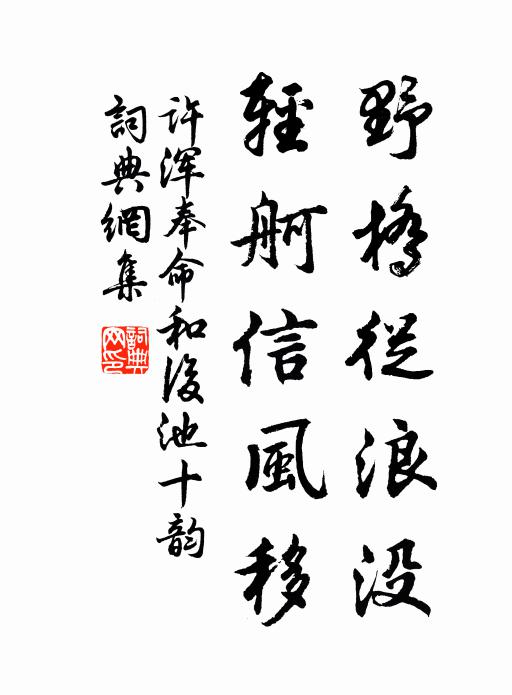 野橋從浪没
輕舸信風移
许浑奉命和後池十韵
詞典網集
詞典网印